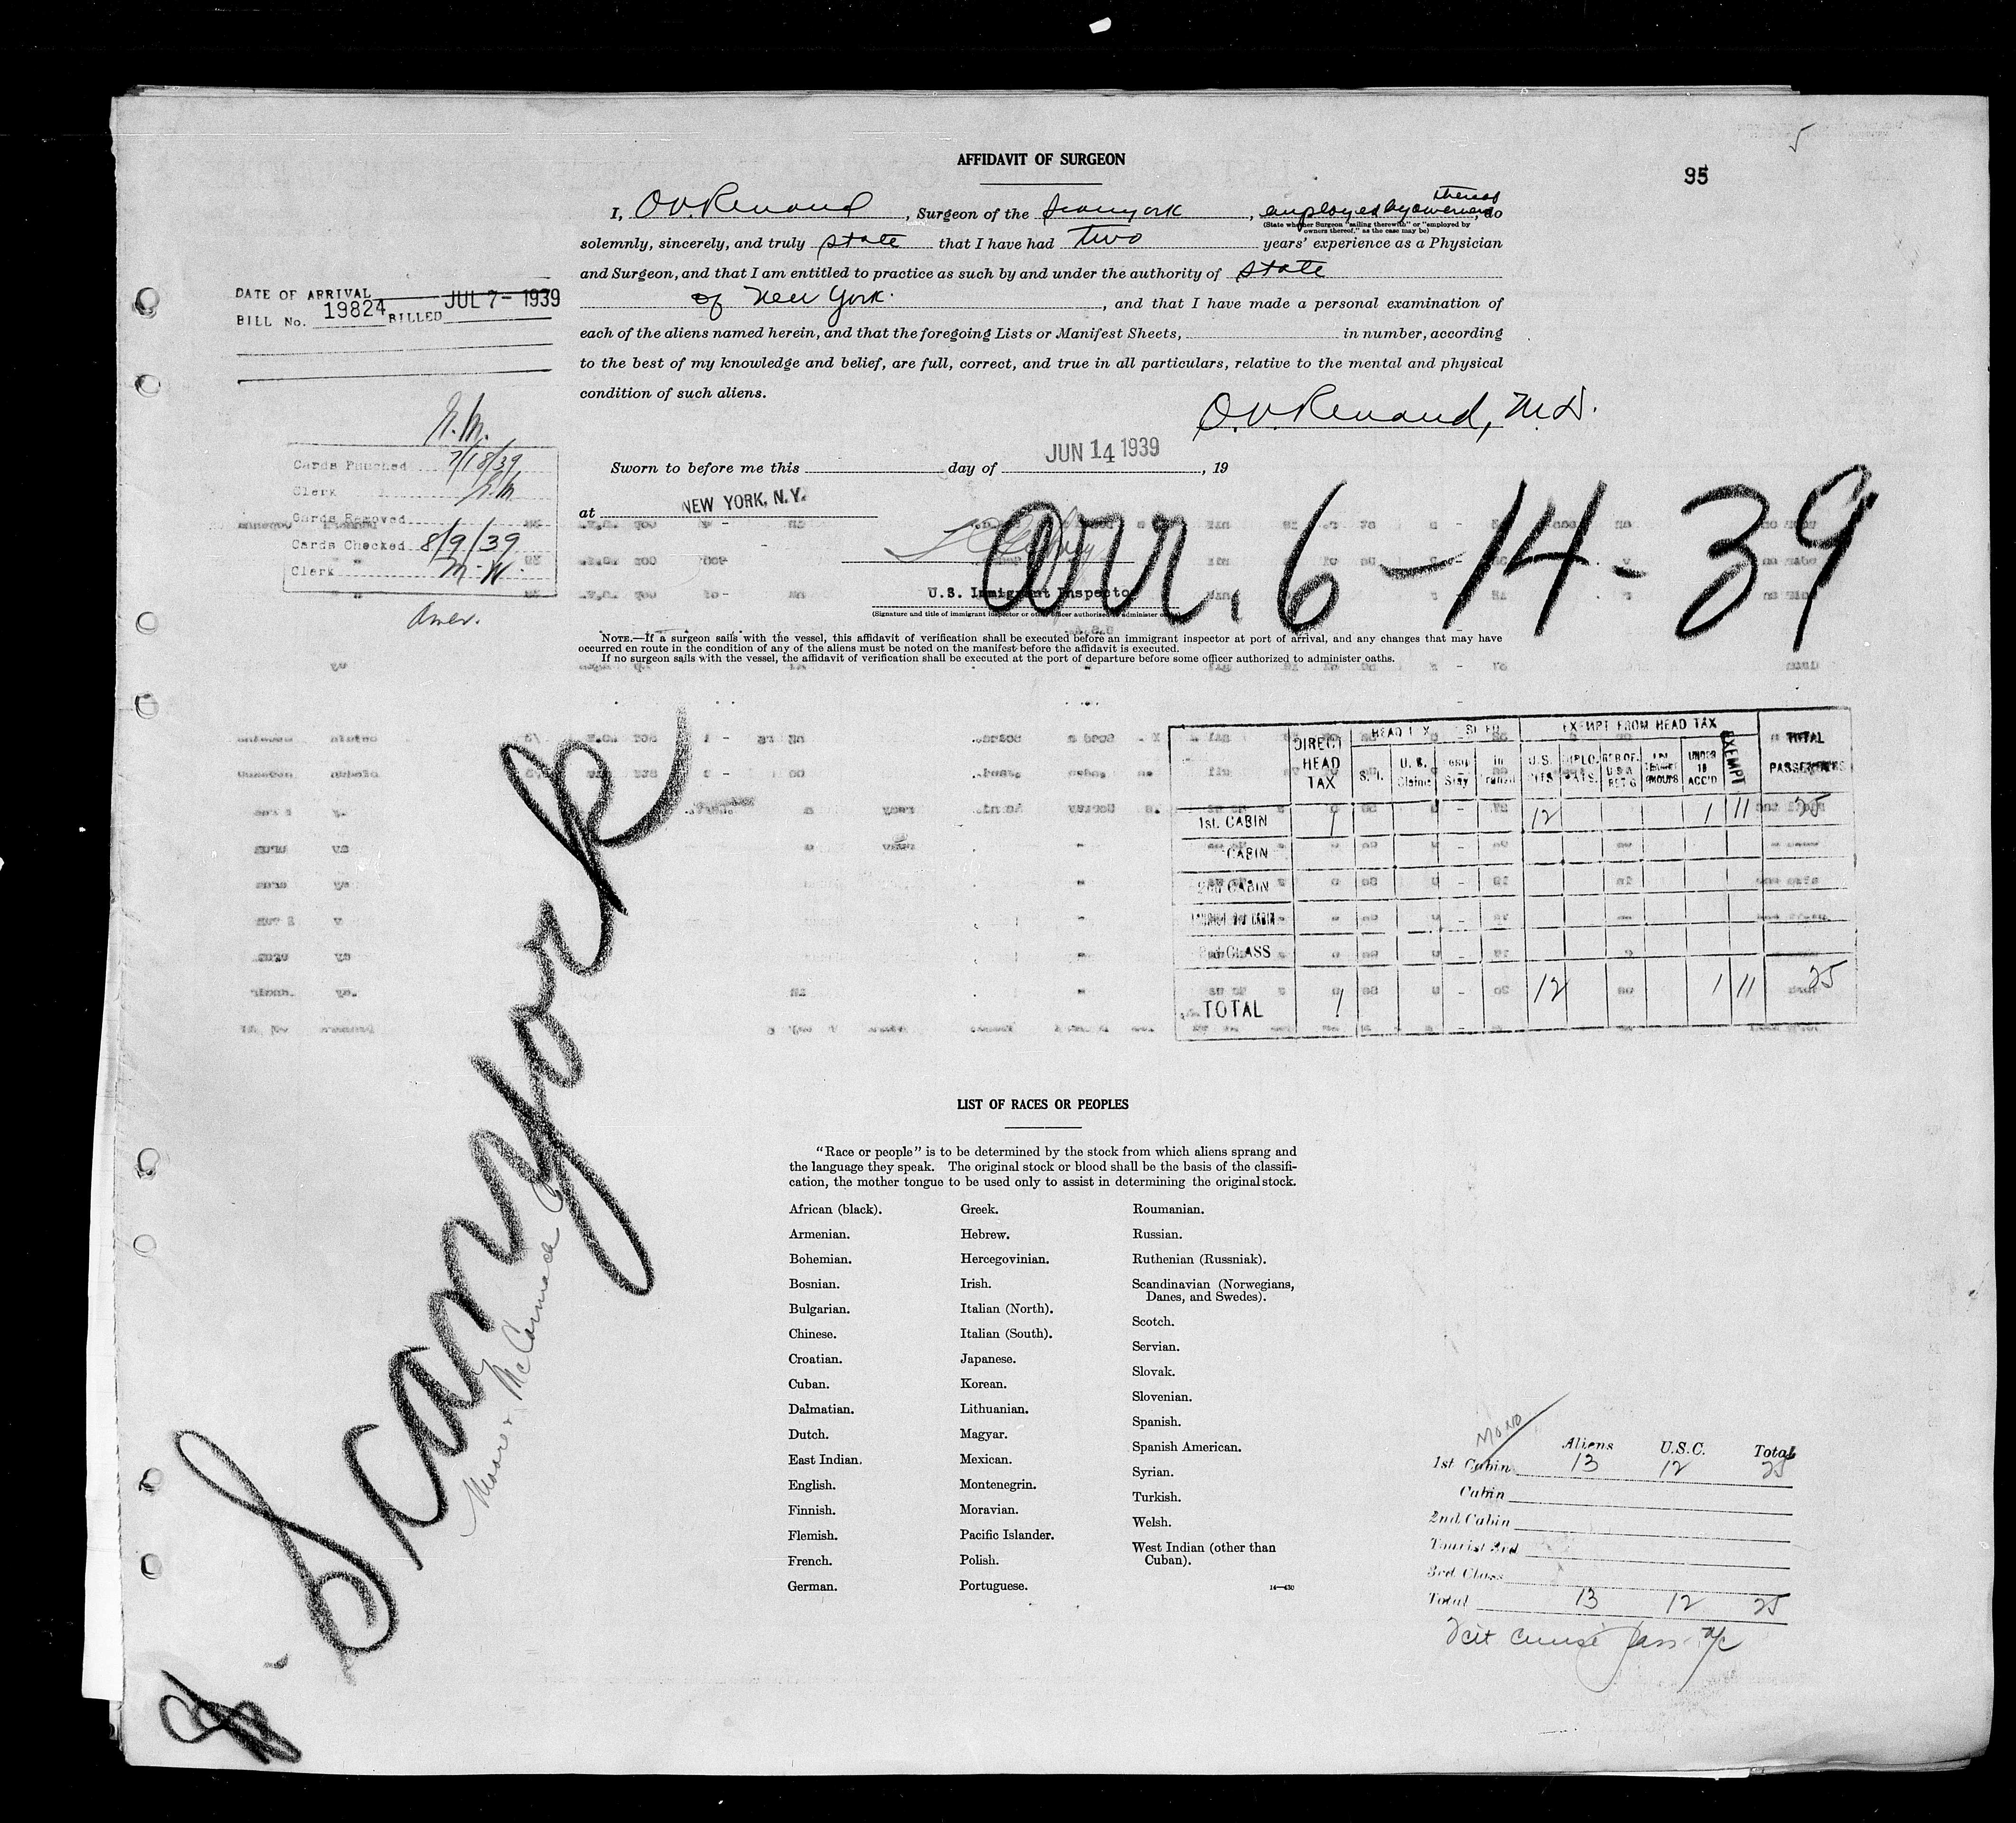 5
95
AFFIDAVIT OF SURGEON
I, O.V. Renaud, Surgeon of the Scanyork, employed by owners thereof, do
(State whether Surgeon "sailing therewith" or "employed by
owners thereof," as the case may be)
solemnly, sincerely, and truly state that I have had two years' experience as a Physician
and Surgeon, and that I am entitled to practice as such by and under the authority of state
of New York., and that I have made a personal examination of
each of the aliens named herein, and that the foregoing Lists or Manifest Sheets, in number, according
to the best of my knowledge and belief, are full, correct, and true in all particulars, relative to the mental and physical
condition of such aliens.
O.V. Renaud, M.D.
DATE OF ARRIVAL
BILL No. 19824 BILLED JUL 7- 1939
Cards Punched 7/18/39
Clerk
Cards Removed
Cards Checked 8/9/39
Clerk M.W.
Sworn to before me this day of JUN 14 1939, 19
at NEW YORK, N.Y.
arr. 6-14-39
U.S. Immigrant Inspector
(Signature and title of immigrant inspector or other officer authorized to administer oaths)
NOTE.—If a surgeon sails with the vessel, this affidavit of verification shall be executed before an immigrant inspector at port of arrival, and any changes that may have
occurred en route in the condition of any of the aliens must be noted on the manifest before the affidavit is executed.
If no surgeon sails with the vessel, the affidavit of verification shall be executed at the port of departure before some officer authorized to administer oaths.
DIRECT HEAD TAX
EXEMPT FROM HEAD TAX
TOTAL PASSENGERS
S.I. U.S. Claims Temp Stay In Transit U.S. CITS. DIPLOMATS. RES OF U.S.A. RET'G UNDER 16 ACC'D EXEMPT
1st. CABIN 1 12 1 11 25
CABIN
2nd CABIN
3rd CLASS
TOTAL 1 12 1 11 25
Scanyork
Moore & McCormack Co
LIST OF RACES OR PEOPLES
"Race or people" is to be determined by the stock from which aliens sprang and
the language they speak. The original stock or blood shall be the basis of the classifi-
cation, the mother tongue to be used only to assist in determining the original stock.
African (black).
Armenian.
Bohemian.
Bosnian.
Bulgarian.
Chinese.
Croatian.
Cuban.
Dalmatian.
Dutch.
East Indian.
English.
Finnish.
Flemish.
French.
German.
Greek.
Hebrew.
Hercegovinian.
Irish.
Italian (North).
Italian (South).
Japanese.
Korean.
Lithuanian.
Magyar.
Mexican.
Montenegrin.
Moravian.
Pacific Islander.
Polish.
Portuguese.
Roumanian.
Russian.
Ruthenian (Russniak).
Scandinavian (Norwegians,
Danes, and Swedes).
Scotch.
Servian.
Slovak.
Slovenian.
Spanish.
Spanish American.
Syrian.
Turkish.
Welsh.
West Indian (other than
Cuban).
14—430
Aliens U.S.C. Total
1st Cabin 13 12 25
Cabin
2nd Cabin
Tourist 3rd
3rd Class
Total 13 12 25
cruise pass